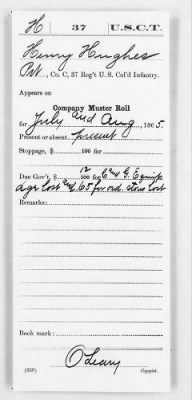 H | 37 | U.S.C.T.
Henry Hughes
Pvt, Co. C, 37 Reg't U. S. Col'd Infantry.
Appears on
Company Muster Roll
for July and Aug, 1865.
Present or absent, present
Stoppage, $ 100 for
Due Gov't, $ 12/100 for C and G. Equip
age lost and 65 for ord. stores lost
Remarks:
Book mark:
O'Leary
(358) Copyist.